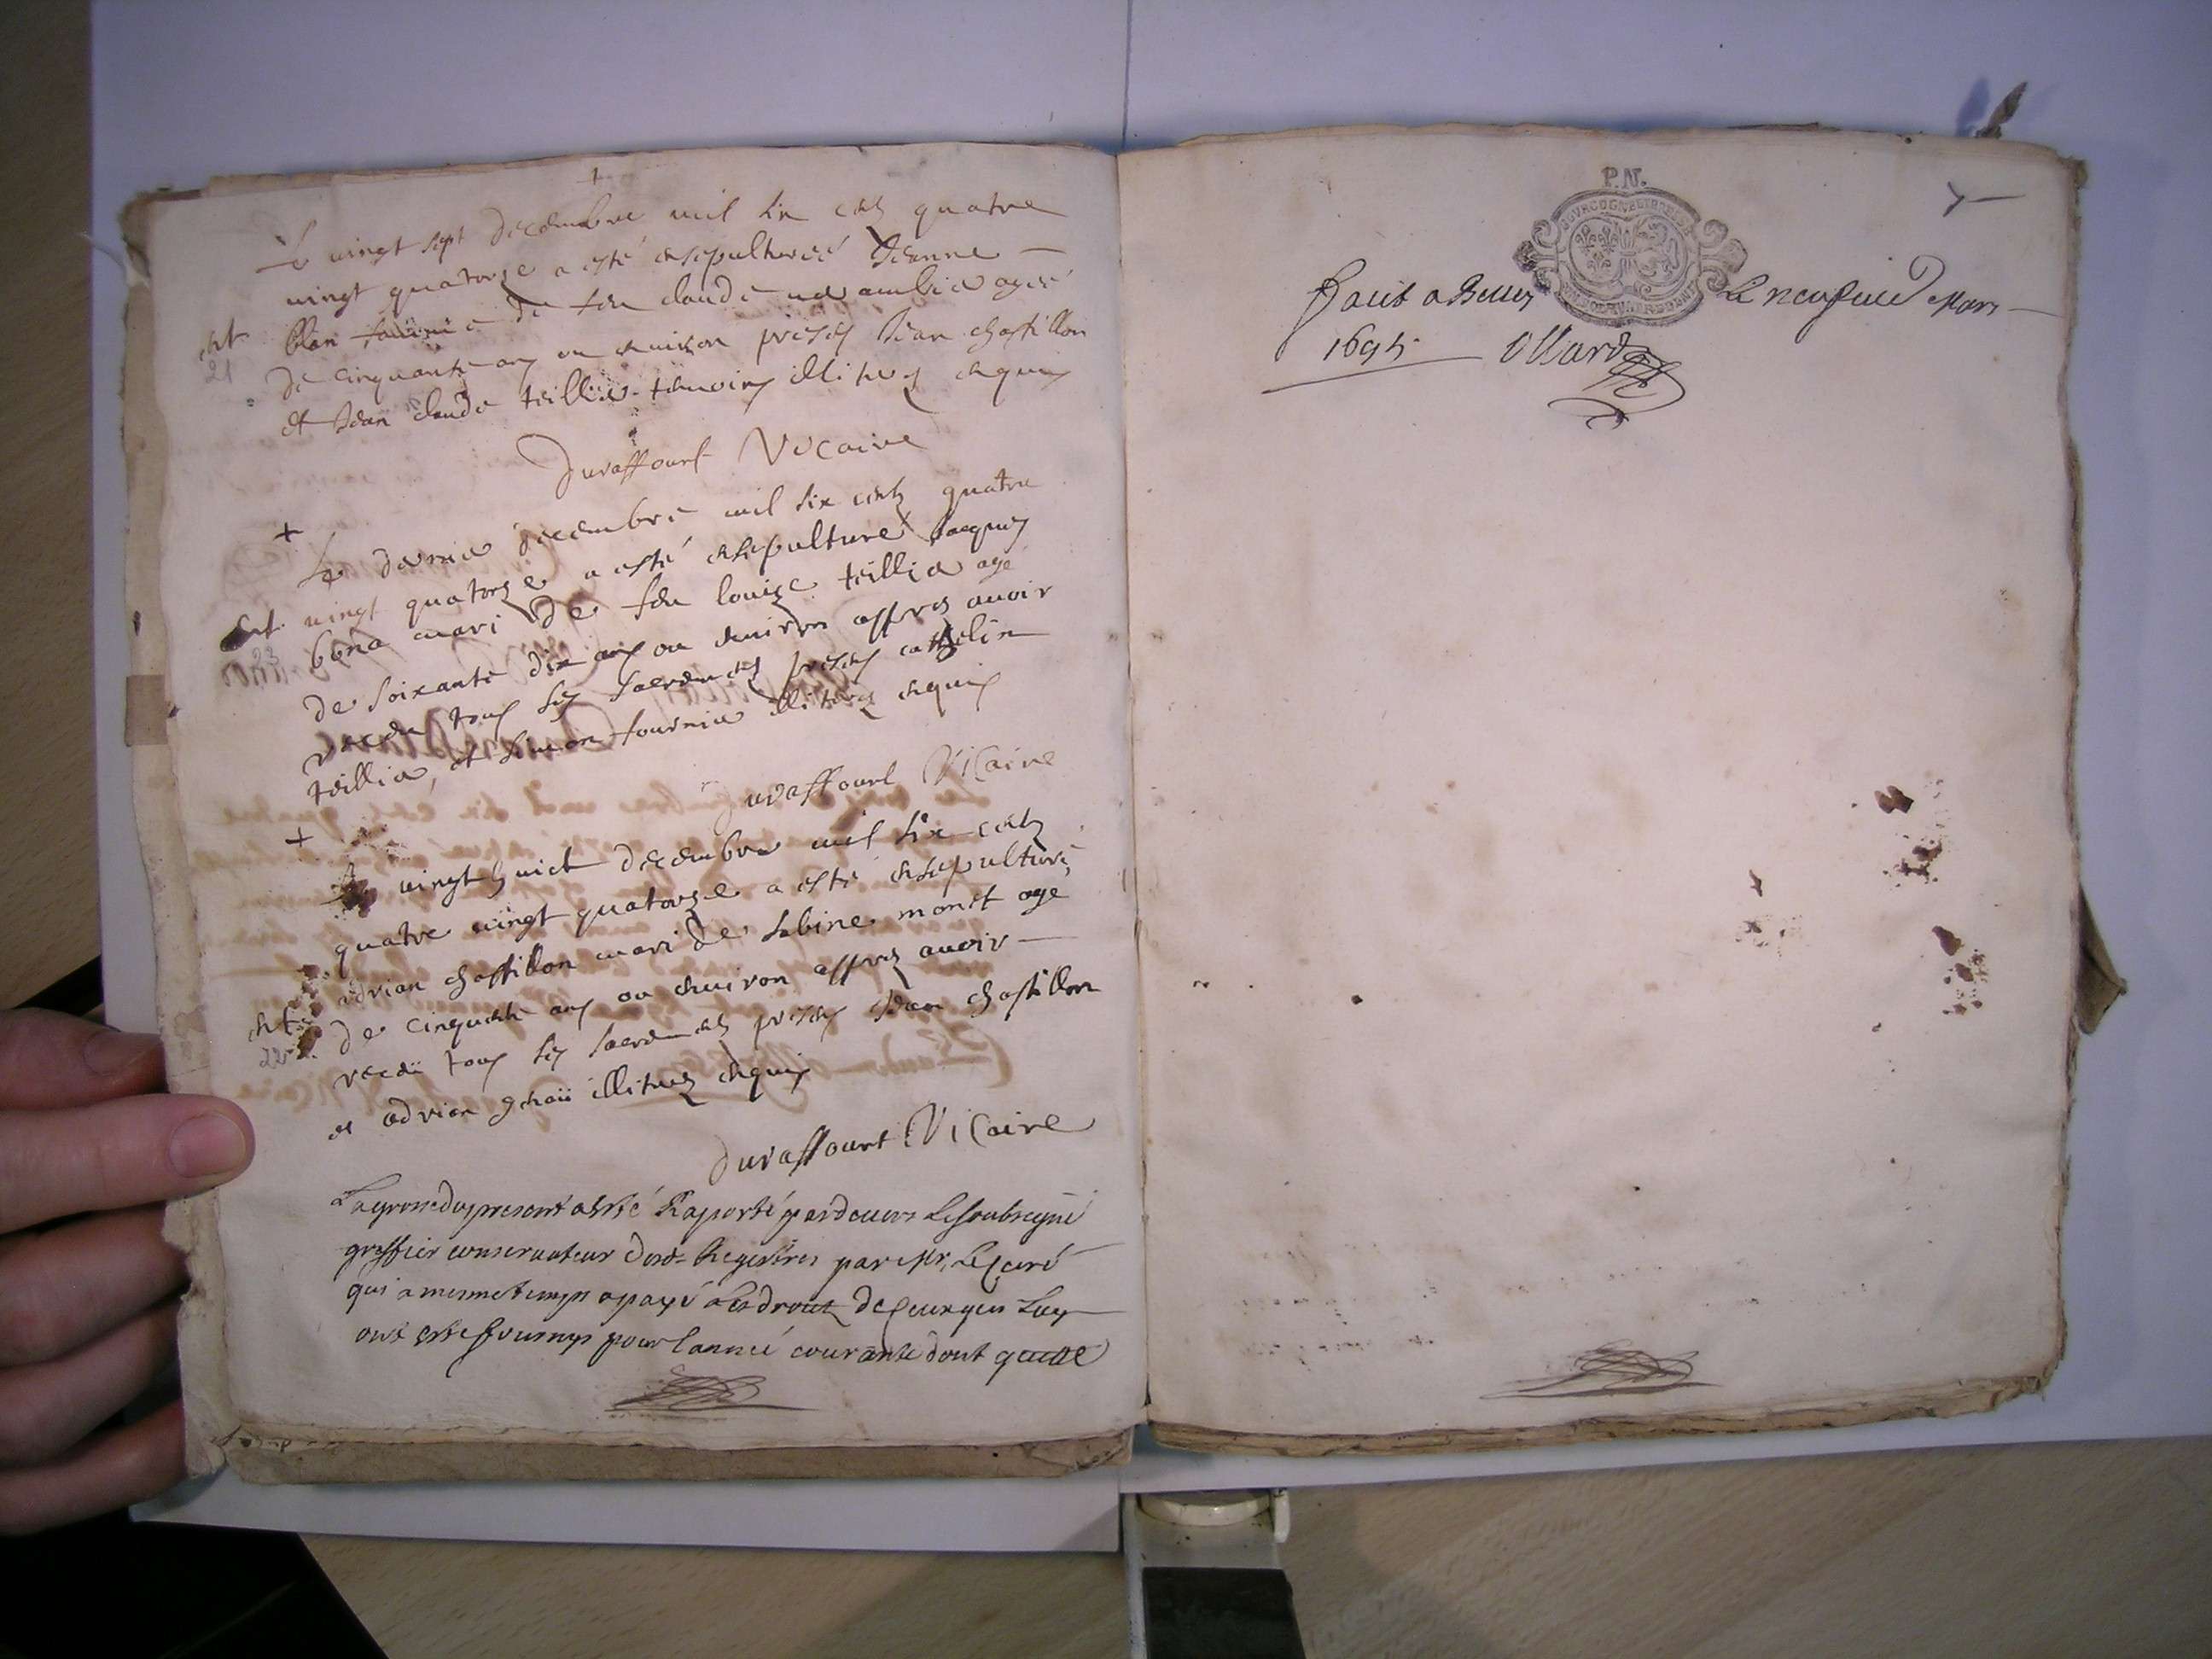 Le vingt sept decembre mil six cents quatre
vingt quatorze a esté ensepulturee Jeanne
blan femme de feu claude
ent
21
de cinquante ans ou environ presens Jean chastillon
et Jean claude teillier temoins illiteres enquis
Duraffourt Vicaire
+
Le dernier decembre mil six cents quatre
vingt quatorze a esté ensepulture Jacques
ent
23
bona mari de feu louise teillier agé
de soixante dix ans ou environ appres avoir
receu tous ses sacrements presens cathelin
teillier, et simon fournier illiteres enquis
Duraffourt Vicaire
+
Le vingt huict decembre mil six cents
quatre vingt quatorze a esté ensepulturé
adrian chastillon mari de sabine monet age
ent
22
de cinquante ans ou environ appres avoir
receu tous ses sacrements presens Jean chastillon
et adrian illiteres enquis
Duraffourt Vicaire
La grosse du present a esté Raporté pardevers Le soubsigné
greffier conservateur desd. Registres par Mr. Le Curé
qui a mesme temps a payé Les droits de ceux qui Luy
ont esté fournys pour l'année courante dont quitte
P.N.
BOURGOGNE ET BRESSE
7
Fait a Belley Le neufvie Mars
1695. Ollard